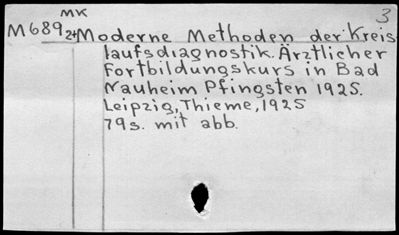 MK 3
M689 24 Moderne Methoden der Kreis
laufsdiagnostik. Ärztlicher
Fortbildungskurs in Bad
Nauheim Pfingsten 1925.
Leipzig, Thieme, 1925
79s. mit abb.